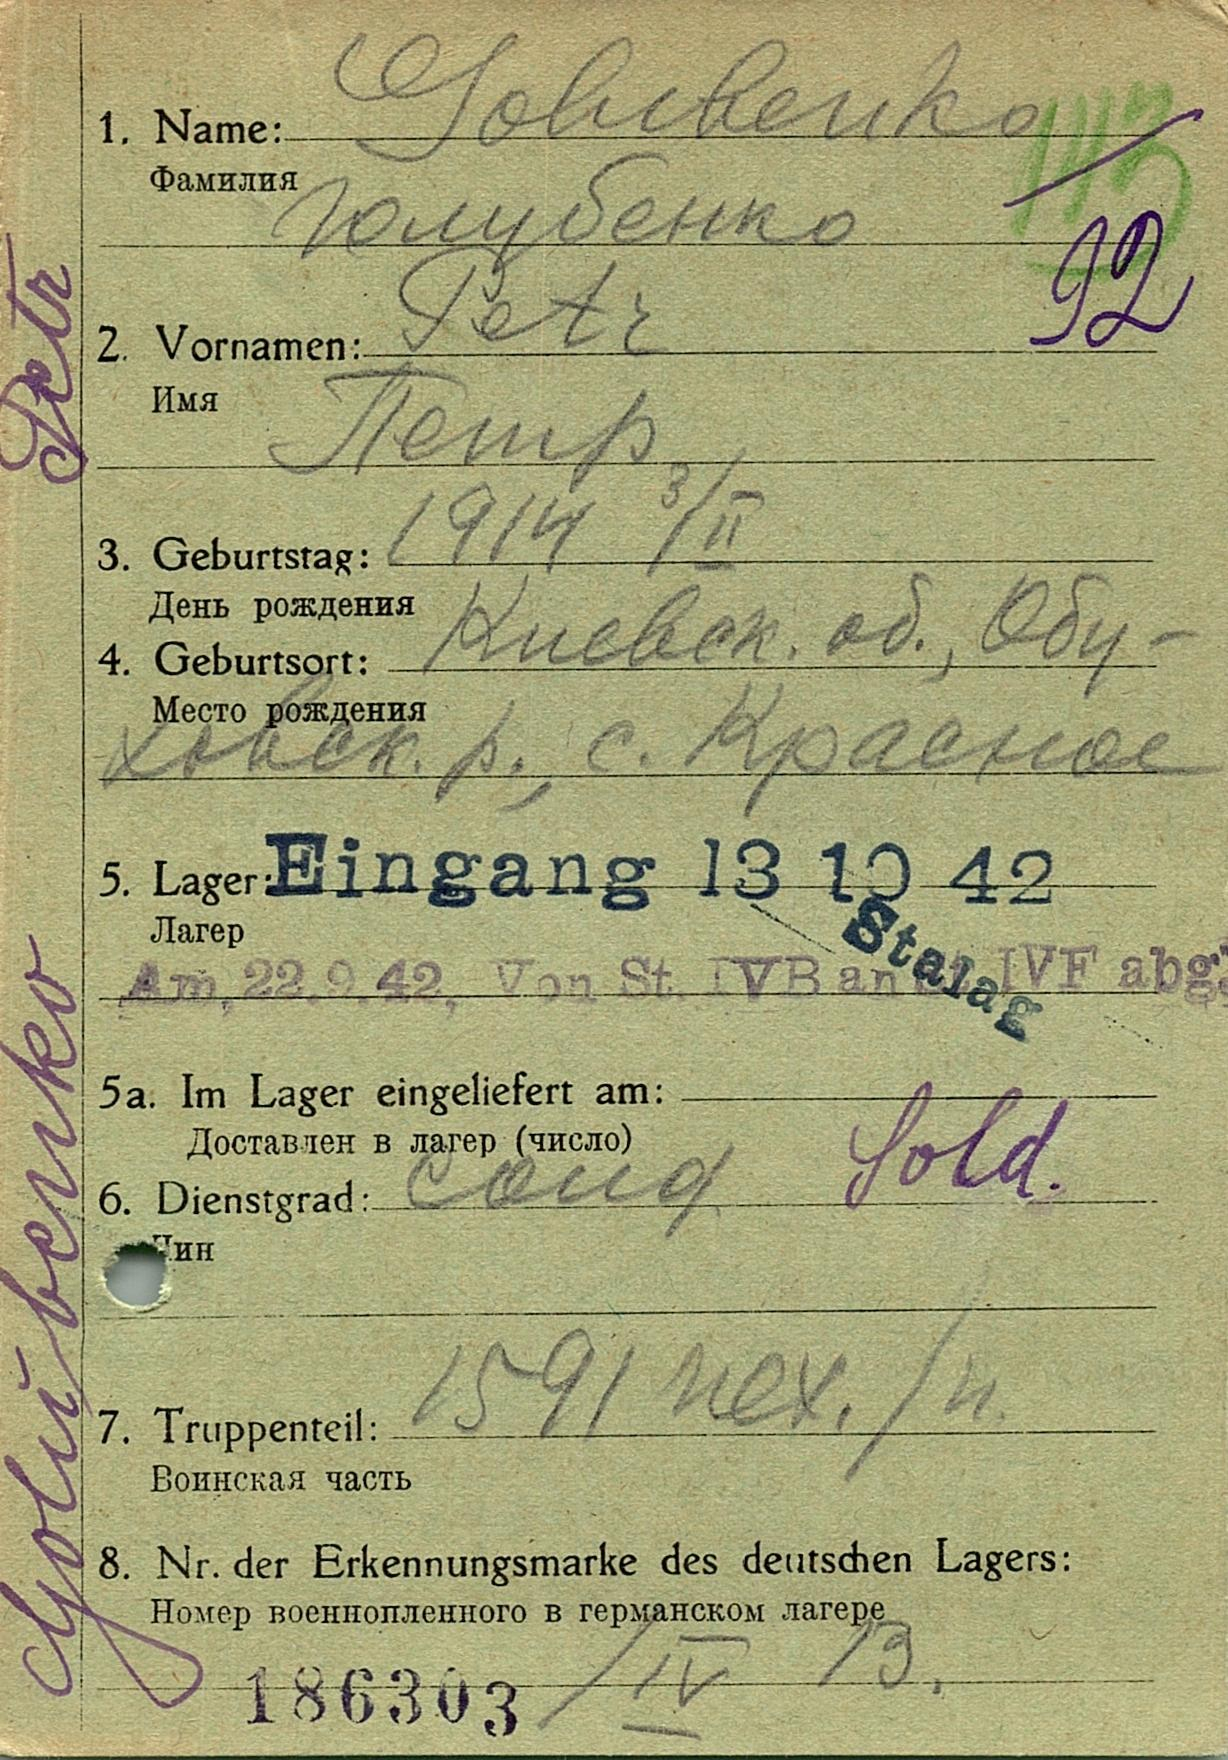 Golubenko
1. Name:
Фамилия
Голубенко
113
92
Petr
2. Vornamen:
Имя
Петр
1914 3/II
3. Geburtstag:
День рождения
4. Geburtsort: Киевск. об., Обу-
Место рождения
ховск. р., с. Красное
5. Lager: Eingang 13 10 42
Лагер
Stalag
Am, 22.9.42, Von St. IVB an IVF abg.
5a. Im Lager eingeliefert am:
Доставлен в лагер (число)
6. Dienstgrad: солд Sold.
Чин
7. Truppenteil: 1591 пех. /п.
Воинская часть
8. Nr. der Erkennungsmarke des deutschen Lagers:
Номер военнопленного в германском лагере
186303 / IV B.
Golubenko Petr